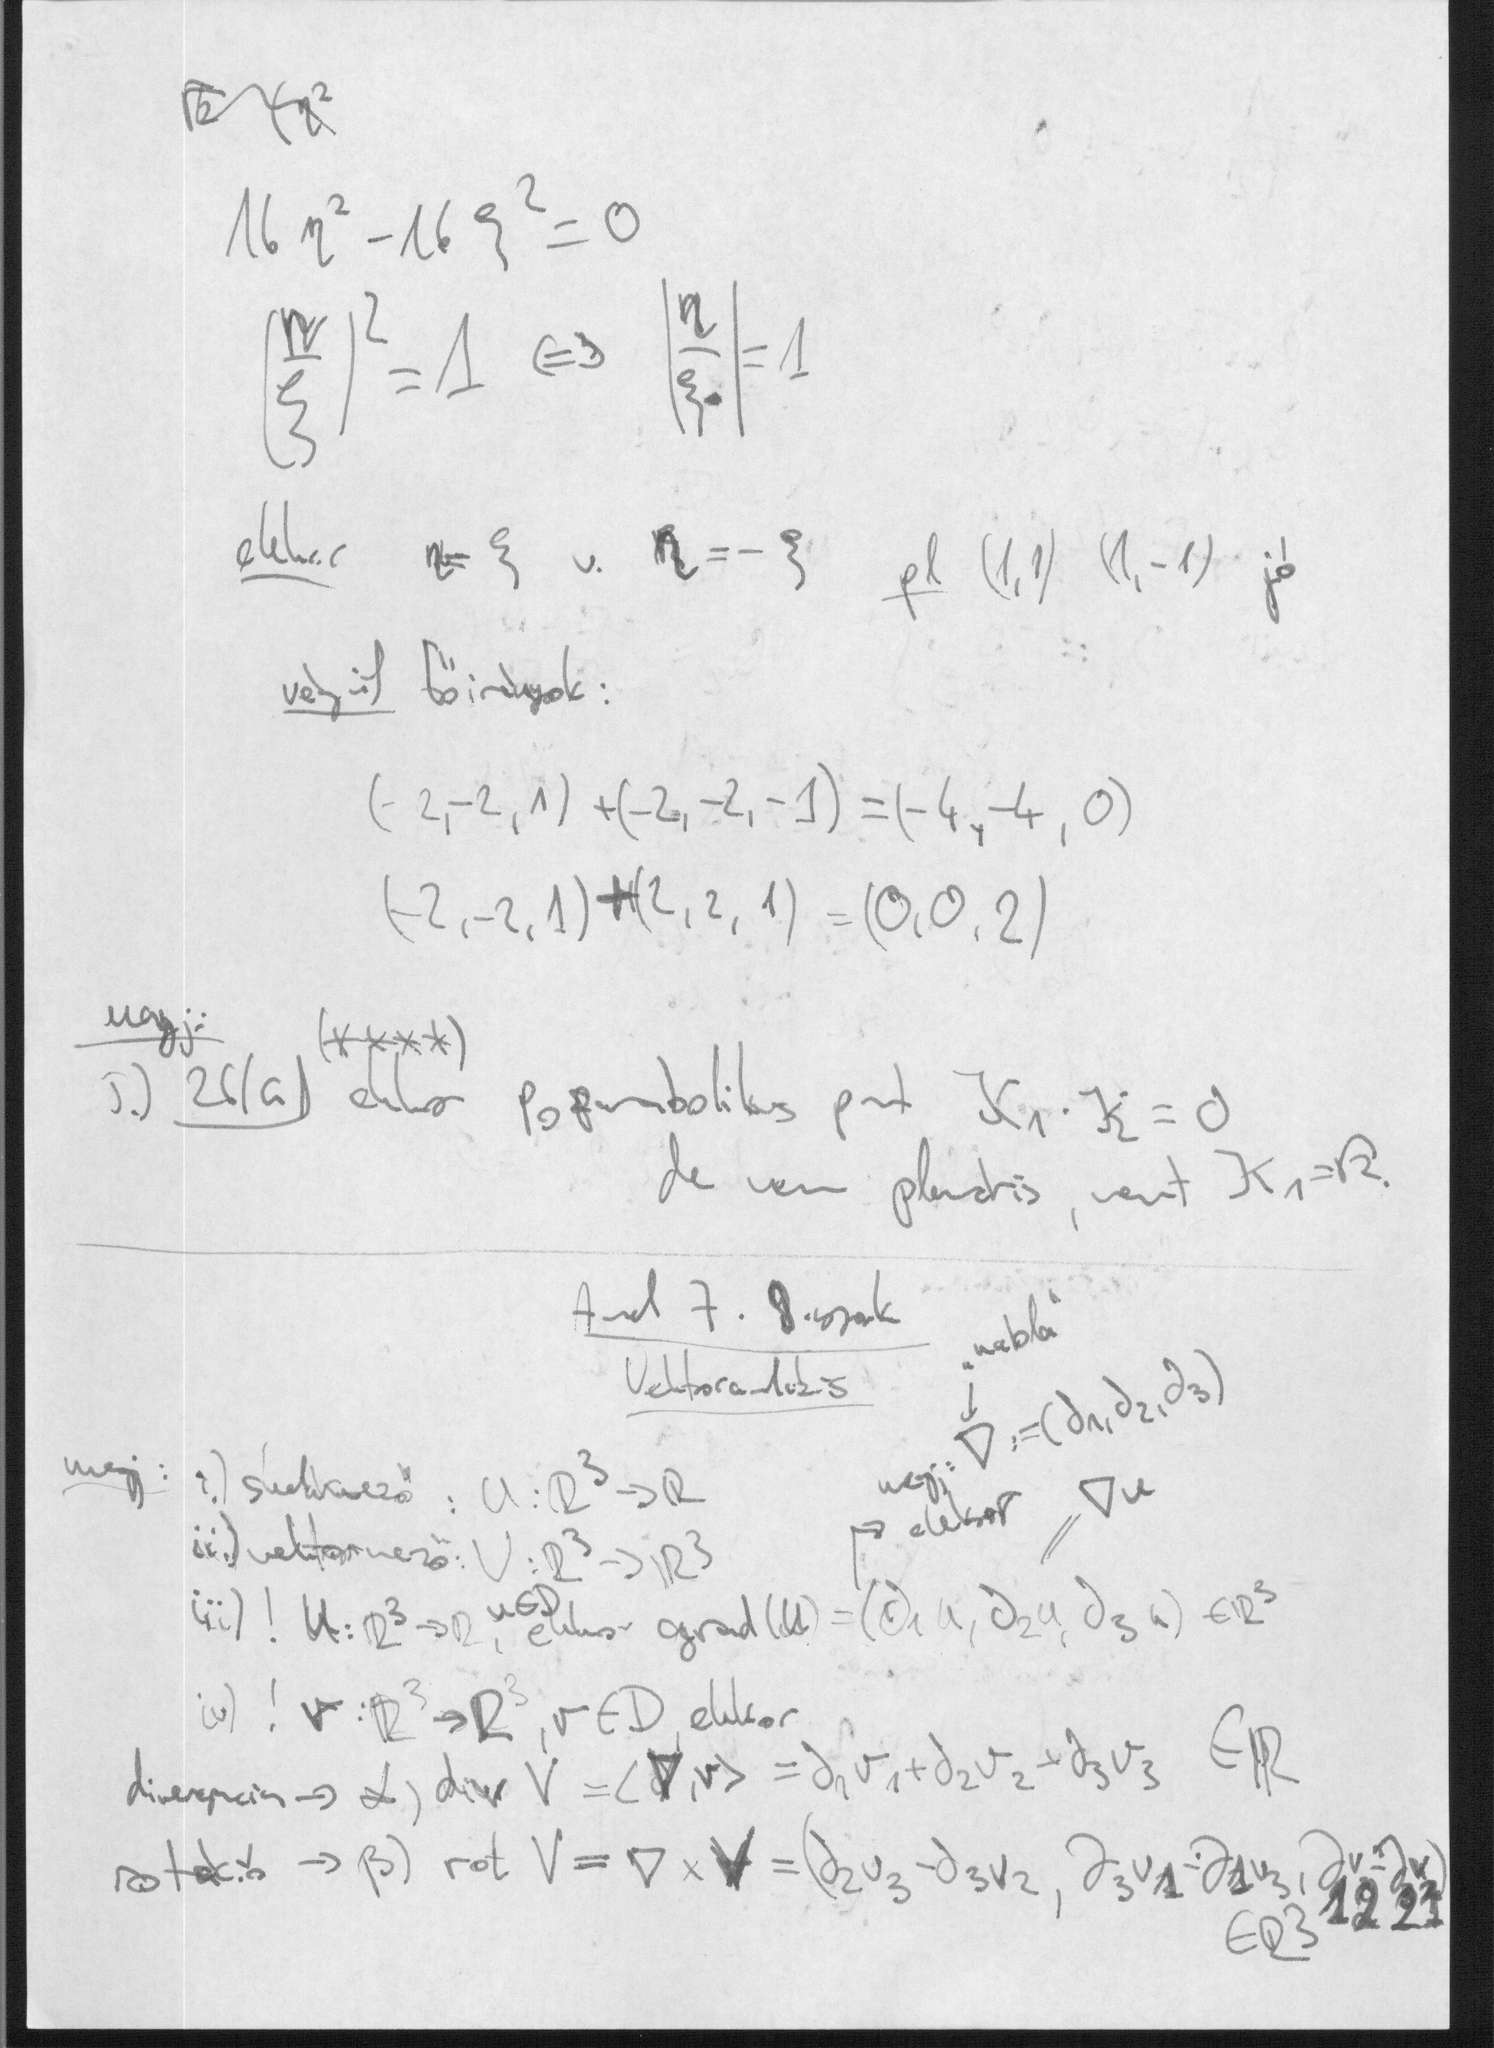 16 η² - 16 ξ² = 0
(η/ξ)² = 1 ⇔ |η/ξ| = 1
ekkor η = ξ v. η = -ξ pl (1,1) (1,-1) jó
végül főirányok:
(-2,-2,1) + (-2,-2,-1) = (-4,-4,0)
(-2,-2,1) + (2,2,1) = (0,0,2)
megj:
(****)
i.) 26(a) ekkor p₀ parabolikus pont K₁·K₂ = 0
de nem planáris, mert K₁ = √2.
Anal 7. 8. szak
Vektoranalízis
"nabla"
↓
megj: ∇ := (∂1, ∂2, ∂3)
→ ekkor ∇u
megj: i.) skalármező: U: ℝ³ → ℝ
ii.) vektormező: V: ℝ³ → ℝ³
iii) ! U: ℝ³ → ℝ, u∈D ekkor grad(U) = (∂₁u, ∂₂u, ∂₃u) ∈ ℝ³
iv) ! v: ℝ³ → ℝ³, v ∈ D, ekkor
divergencia → α) div V = ⟨∇, v⟩ = ∂₁v₁ + ∂₂v₂ + ∂₃v₃ ∈ ℝ
rotáció → β) rot V = ∇ × V = (∂₂v₃ - ∂₃v₂, ∂₃v₁ - ∂₁v₃, ∂₁v₂ - ∂₂v₁)
∈ ℝ³